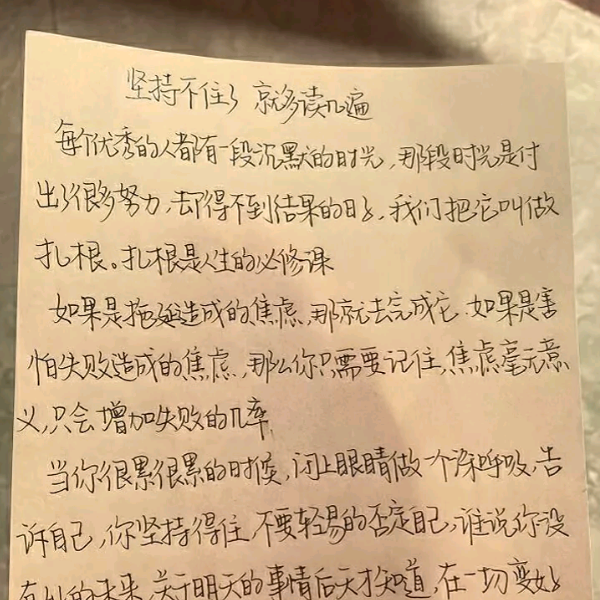 坚持不住了 就多读几遍
每个优秀的人都有一段沉默的时光，那段时光是付
出了很多努力，却得不到结果的日子，我们把它叫做
扎根。扎根是人生的必修课
如果是拖延造成的焦虑，那就去完成它．如果是害
怕失败造成的焦虑，那么你只需要记住，焦虑毫无意
义，只会增加失败的几率
当你很累很累的时候，闭上眼睛做一个深呼吸，告
诉自己，你坚持得住，不要轻易的否定自己，谁说你没
有 的未来，关于明天的事情后天才知道，在一切变好